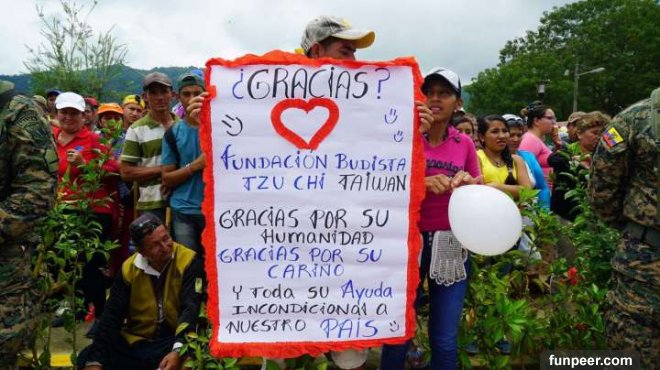 ¿GRACIAS?
FUNDACIÓN BUDISTA
TZU CHI TAIWAN
GRACIAS POR SU
HUMANIDAD
GRACIAS POR SU
CARIÑO
Y TODA SU AYUDA
INCONDICIONAL A
NUESTRO PAÍS
funpeer.com